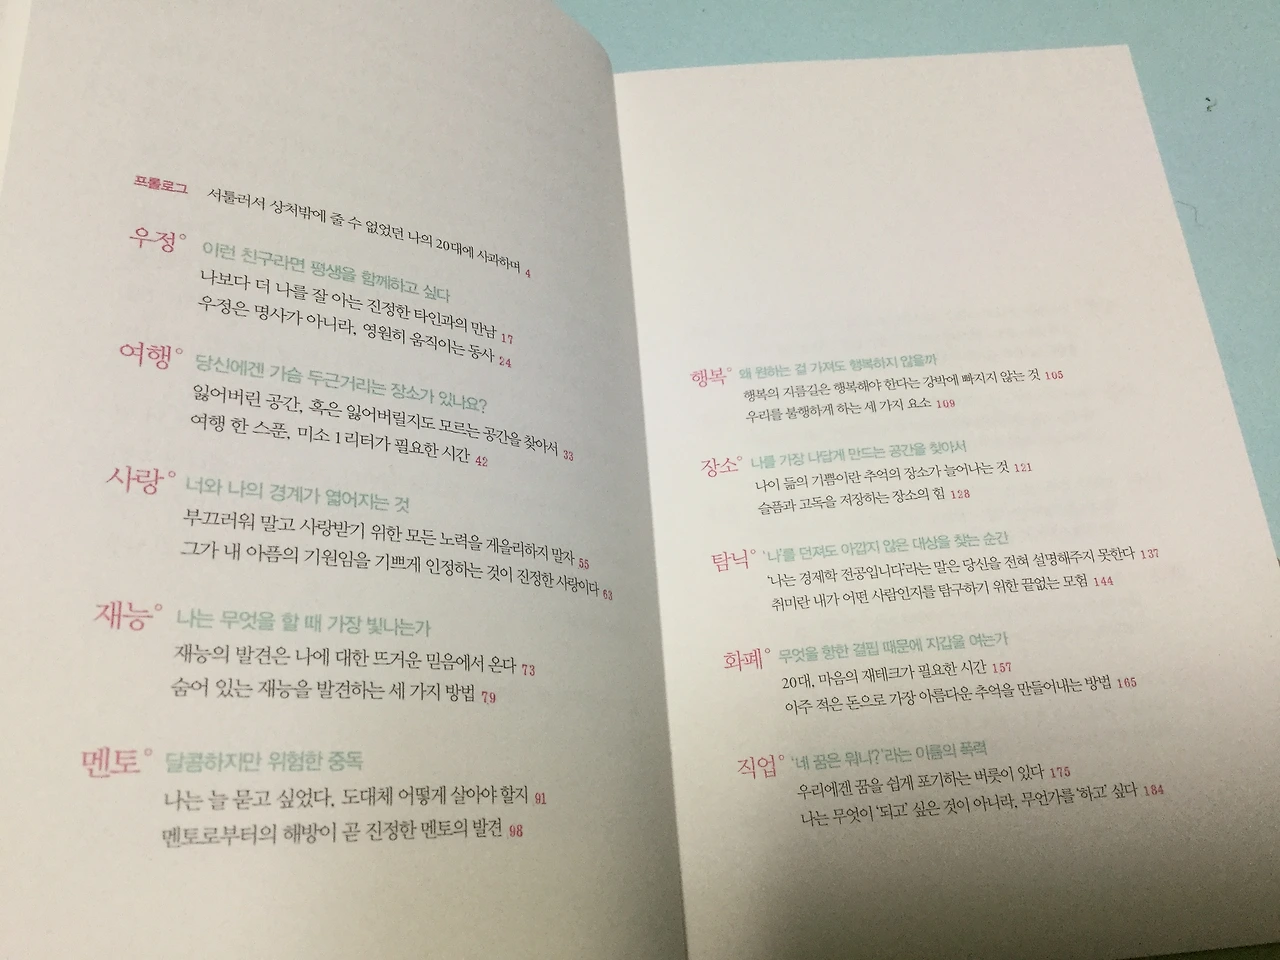 프롤로그 서툴러서 상처밖에 줄 수 없었던 나의 20대에 사과하며 4
우정° 이런 친구라면 평생을 함께하고 싶다
나보다 더 나를 잘 아는 진정한 타인과의 만남 17
우정은 명사가 아니라, 영원히 움직이는 동사 24
여행° 당신에겐 가슴 두근거리는 장소가 있나요?
잃어버린 공간, 혹은 잃어버릴지도 모르는 공간을 찾아서 33
여행 한 스푼, 미소 1리터가 필요한 시간 42
사랑° 너와 나의 경계가 엷어지는 것
부끄러워 말고 사랑받기 위한 모든 노력을 게을리하지 말자 55
그가 내 아픔의 기원임을 기쁘게 인정하는 것이 진정한 사랑이다 63
재능° 나는 무엇을 할 때 가장 빛나는가
재능의 발견은 나에 대한 뜨거운 믿음에서 온다 73
숨어 있는 재능을 발견하는 세 가지 방법 79
멘토° 달콤하지만 위험한 중독
나는 늘 묻고 싶었다, 도대체 어떻게 살아야 할지 91
멘토로부터의 해방이 곧 진정한 멘토의 발견 98
행복° 왜 원하는 걸 가져도 행복하지 않을까
행복의 지름길은 행복해야 한다는 강박에 빠지지 않는 것 105
우리를 불행하게 하는 세 가지 요소 109
장소° 나를 가장 나답게 만드는 공간을 찾아서
나이 듦의 기쁨이란 추억의 장소가 늘어나는 것 121
슬픔과 고독을 저장하는 장소의 힘 128
탐닉° '나'를 던져도 아깝지 않은 대상을 찾는 순간
'나는 경제학 전공입니다'라는 말은 당신을 전혀 설명해주지 못한다 137
취미란 내가 어떤 사람인지를 탐구하기 위한 끝없는 모험 144
화폐° 무엇을 향한 결핍 때문에 지갑을 여는가
20대, 마음의 재테크가 필요한 시간 157
아주 적은 돈으로 가장 아름다운 추억을 만들어내는 방법 165
직업° '네 꿈은 뭐니?'라는 이름의 폭력
우리에겐 꿈을 쉽게 포기하는 버릇이 있다 175
나는 무엇이 '되고' 싶은 것이 아니라, 무언가를 '하고' 싶다 184